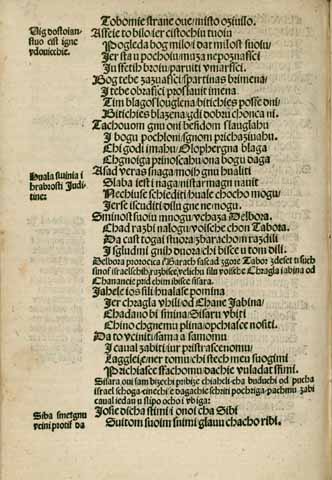 Tobomie strane oue/misto oziuilo.
Dig dostoian-
stuo cist igne
vdouicchie.
Affcie to bilo ier cistochiu tuoiu
Pogleda bog milo i dat milost suoiu/
Jer sta u pochoiu/muza nepoznafsci
Ju scetih broiu paruiti vmarsci.
Bog tebe zazuafsci spartinas brimena/
J tebe obrafsci proslauit imena.
Tim blagoslouglena bitichies posfe dni/
Bitichies blazena/gdi dobri chonca ni.
Tachouom gnu oni besidom slauglahu
J bogu pochloni sgnom prichazinahu.
Chi godi imahu/Olophergna blaga
Chgnoiga prinoscahu/ona bogu daga
Huala suinia i
hrabrosti Judi-
tine:
Asad veras snaga/moih gnu hualiti
Slaba iest i naga/nistar magn nauit
Nechiuse schiediti huale chocho mogu/
Jerse iscudiri dilu gne ne mogu.
Sminost suoiu mnogu/vchaza Delbora/
Chad razbi nalogu/voische chon Tabora.
Da cast togai stuora/zbarachom razdili
J sgludimi gnih duora/chi bisce u tom dili.
Delbora prorocica/i Barach sascad zgore Tabor z deset tisuch
sinof israelschih/razbisce velichu silu voische Chragla iabina od
Chananeie prid chim ibisce sisara.
Jahele ios sili hualase pomina
Jer chragla vbili od Chane Jabina/
Chadano bi smina/Sisaru vbiti
Chino chgnemu plina/opchiasce nositi.
Da to vciniti/sama a samomu
J caual zabiti/iur pristrascenomu/
Laggise/ner tomu/chi stech meu suogimi
Prichiasce sfachomu/dachie vuladat sfimi.
Sisara oui sam bizechi pribize chiahieli-cha buduchi od pucha
israel schoga-cnechi e dagachie schriti pochriga-pachmu zabi
caual iedan u slipo ocho i vbi ga:
Siba smetgnu
veini protif da
Josce discha stimi i onoi cha Sibi
Suitom suoim snimi glauu chacho ribi.